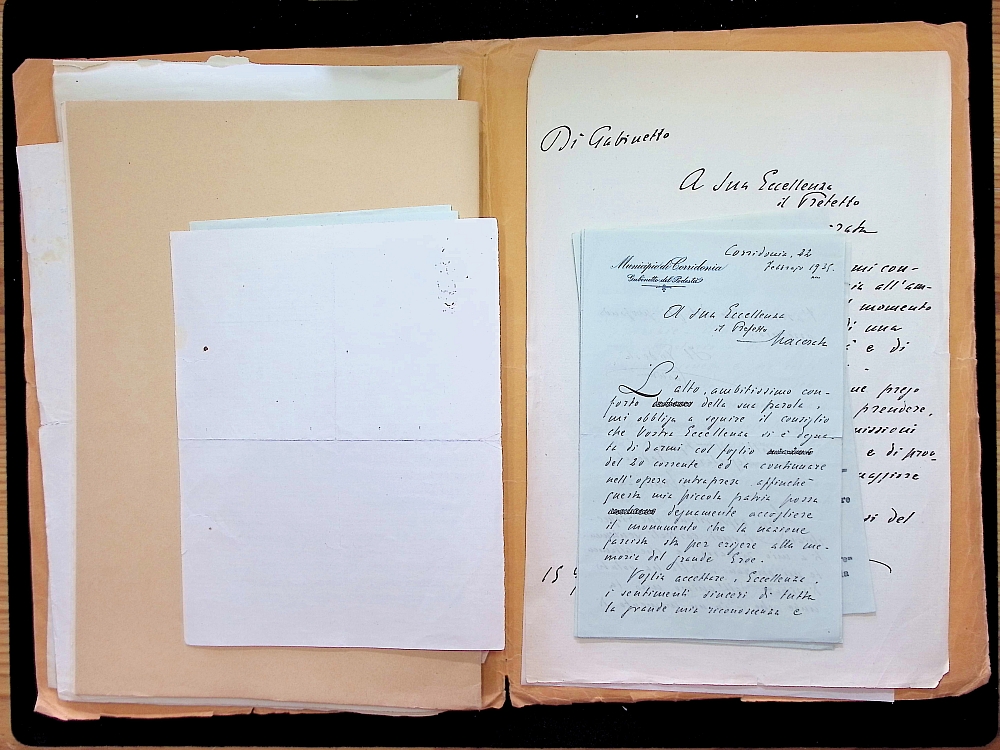 Di Gabinetto
A Sua Eccellenza
il Prefetto
rata
mi con-
ia all'am-
momento
di una
e di
ne prego
prendere,
missioni
e di prov
maggiore
si del
15
Municipio di Corridonia
Gabinetto del Podestà
Corridonia, 22
Febbraio 1935.
A Sua Eccellenza
il Prefetto
Macerata
L'alto, ambitissimo con-
forto della sua parola,
mi obbliga a seguire il consiglio
che Vostra Eccellenza si è degna-
ta di darmi col foglio
del 20 corrente ed a continuare
nell'opera intrapresa affinché
questa mia piccola patria possa
degnamente accogliere
il monumento che la nazione
fascista sta per erigere alla me-
moria del grande Eroe.
Voglia accettare, Eccellenza,
i sentimenti sinceri di tutta
la grande mia riconoscenza e